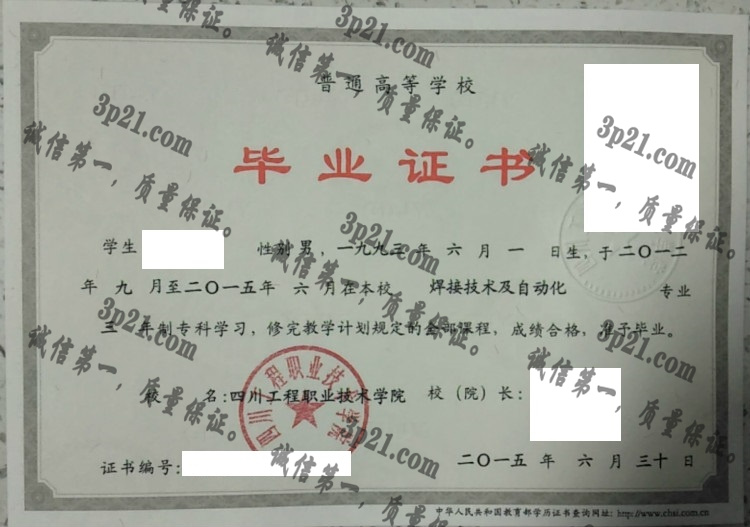 普通高等学校
毕业证书
学生 性别男，一九九三年 六 月 一 日生，于二〇一二
年 九 月至二〇一五年 六 月在本校 焊接技术及自动化 专业
三 年制专科学习，修完教学计划规定的全部课程，成绩合格，准予毕业。
校 名：四川工程职业技术学院 校（院）长：
证书编号： 二〇一五 年 六 月 三十 日
中华人民共和国教育部学历证书查询网址：http://www.chsi.com.cn
四川工程职业技术学院
3p21.com
诚信第一，质量保证。
3p21.com
诚信第一，质量保证。
3p21.com
诚信第一，质量保证。
3p21.com
诚信第一，质量保证。
3p21.com
诚信第一，质量保证。
3p21.com
诚信第一，质量保证。
3p21.com
诚信第一，质量保证。
3p21.com
诚信第一，质量保证。